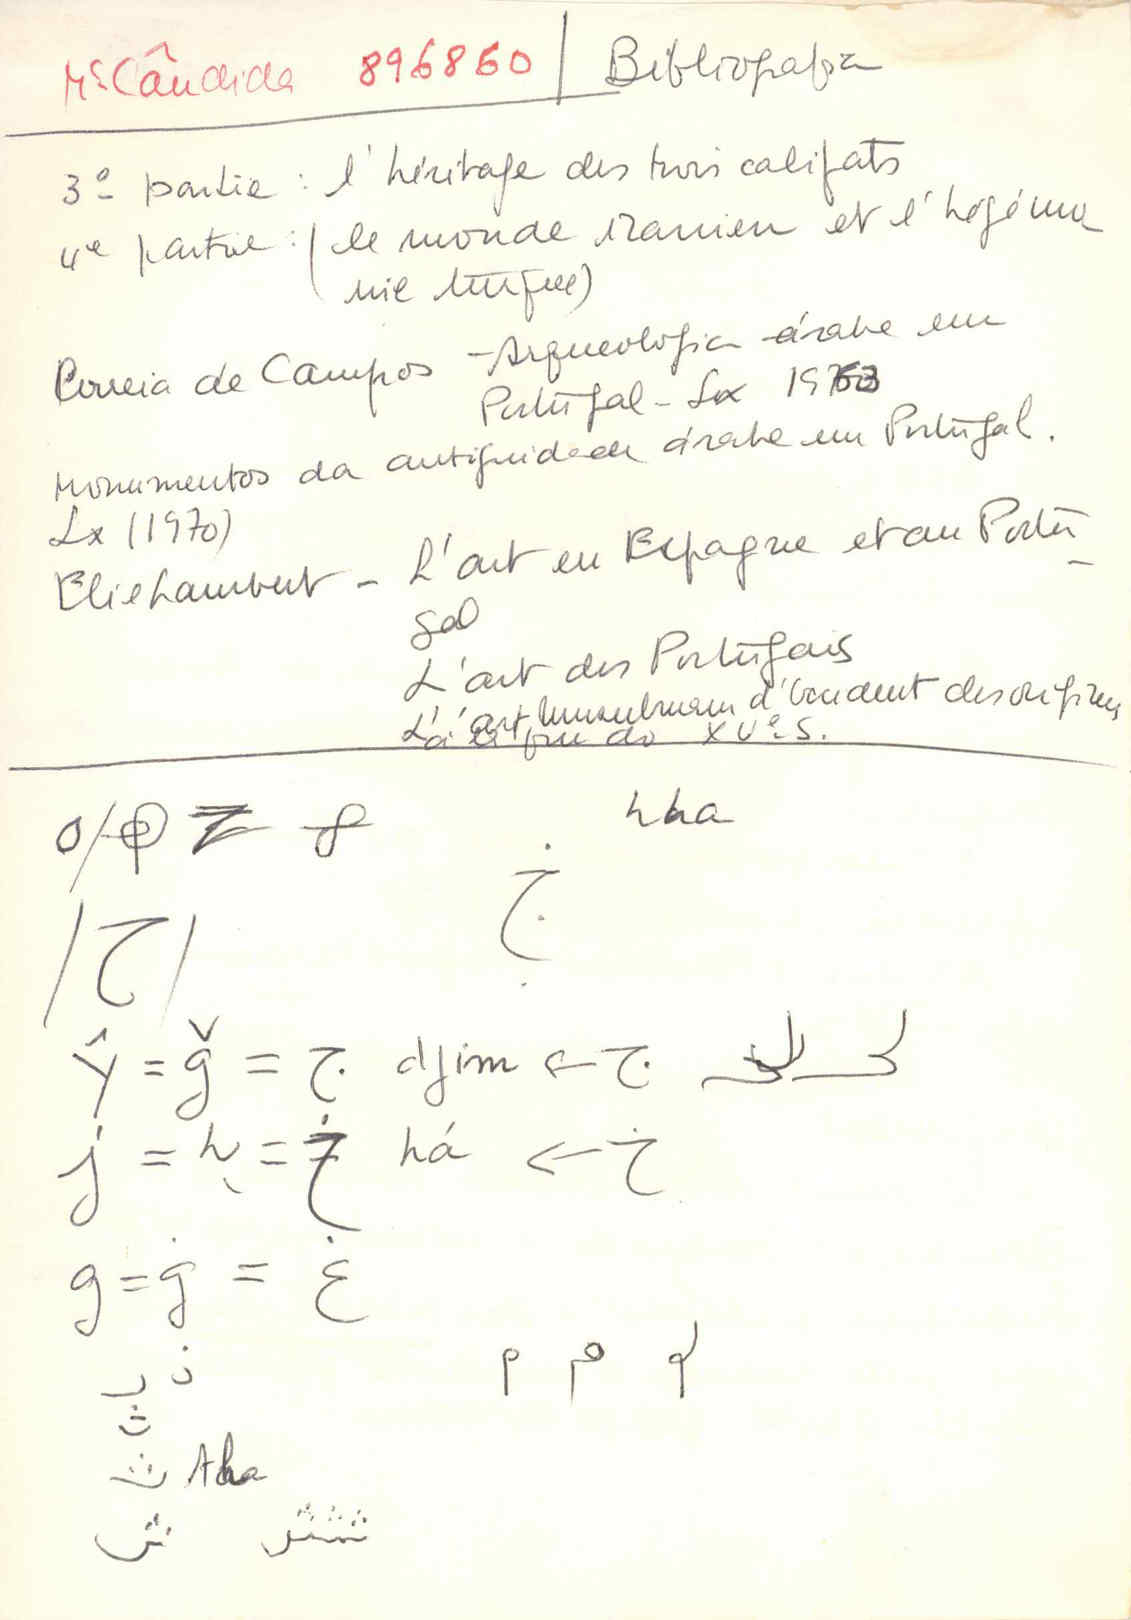 Mª Cândida 896860 | Bibliografia
3ª partie : l'héritage des trois califats
4e partie : (le monde iranien et l'hégémo
nie turque)
Correia de Campos - Arqueologia árabe em
Portugal - Lx 1963
Monumentos da antiguidade árabe em Portugal.
Lx (1970)
Elie Lambert - L'art en Espagne et au Portu
gal
L'art des Portugais
L'art musulman d'Occident des origines
à la fin do XVe. S.
hha
ج
/ح/
ŷ = ğ = ج djim ← ج
j = ḥ = خ há ← خ
g = ġ = غ
م م